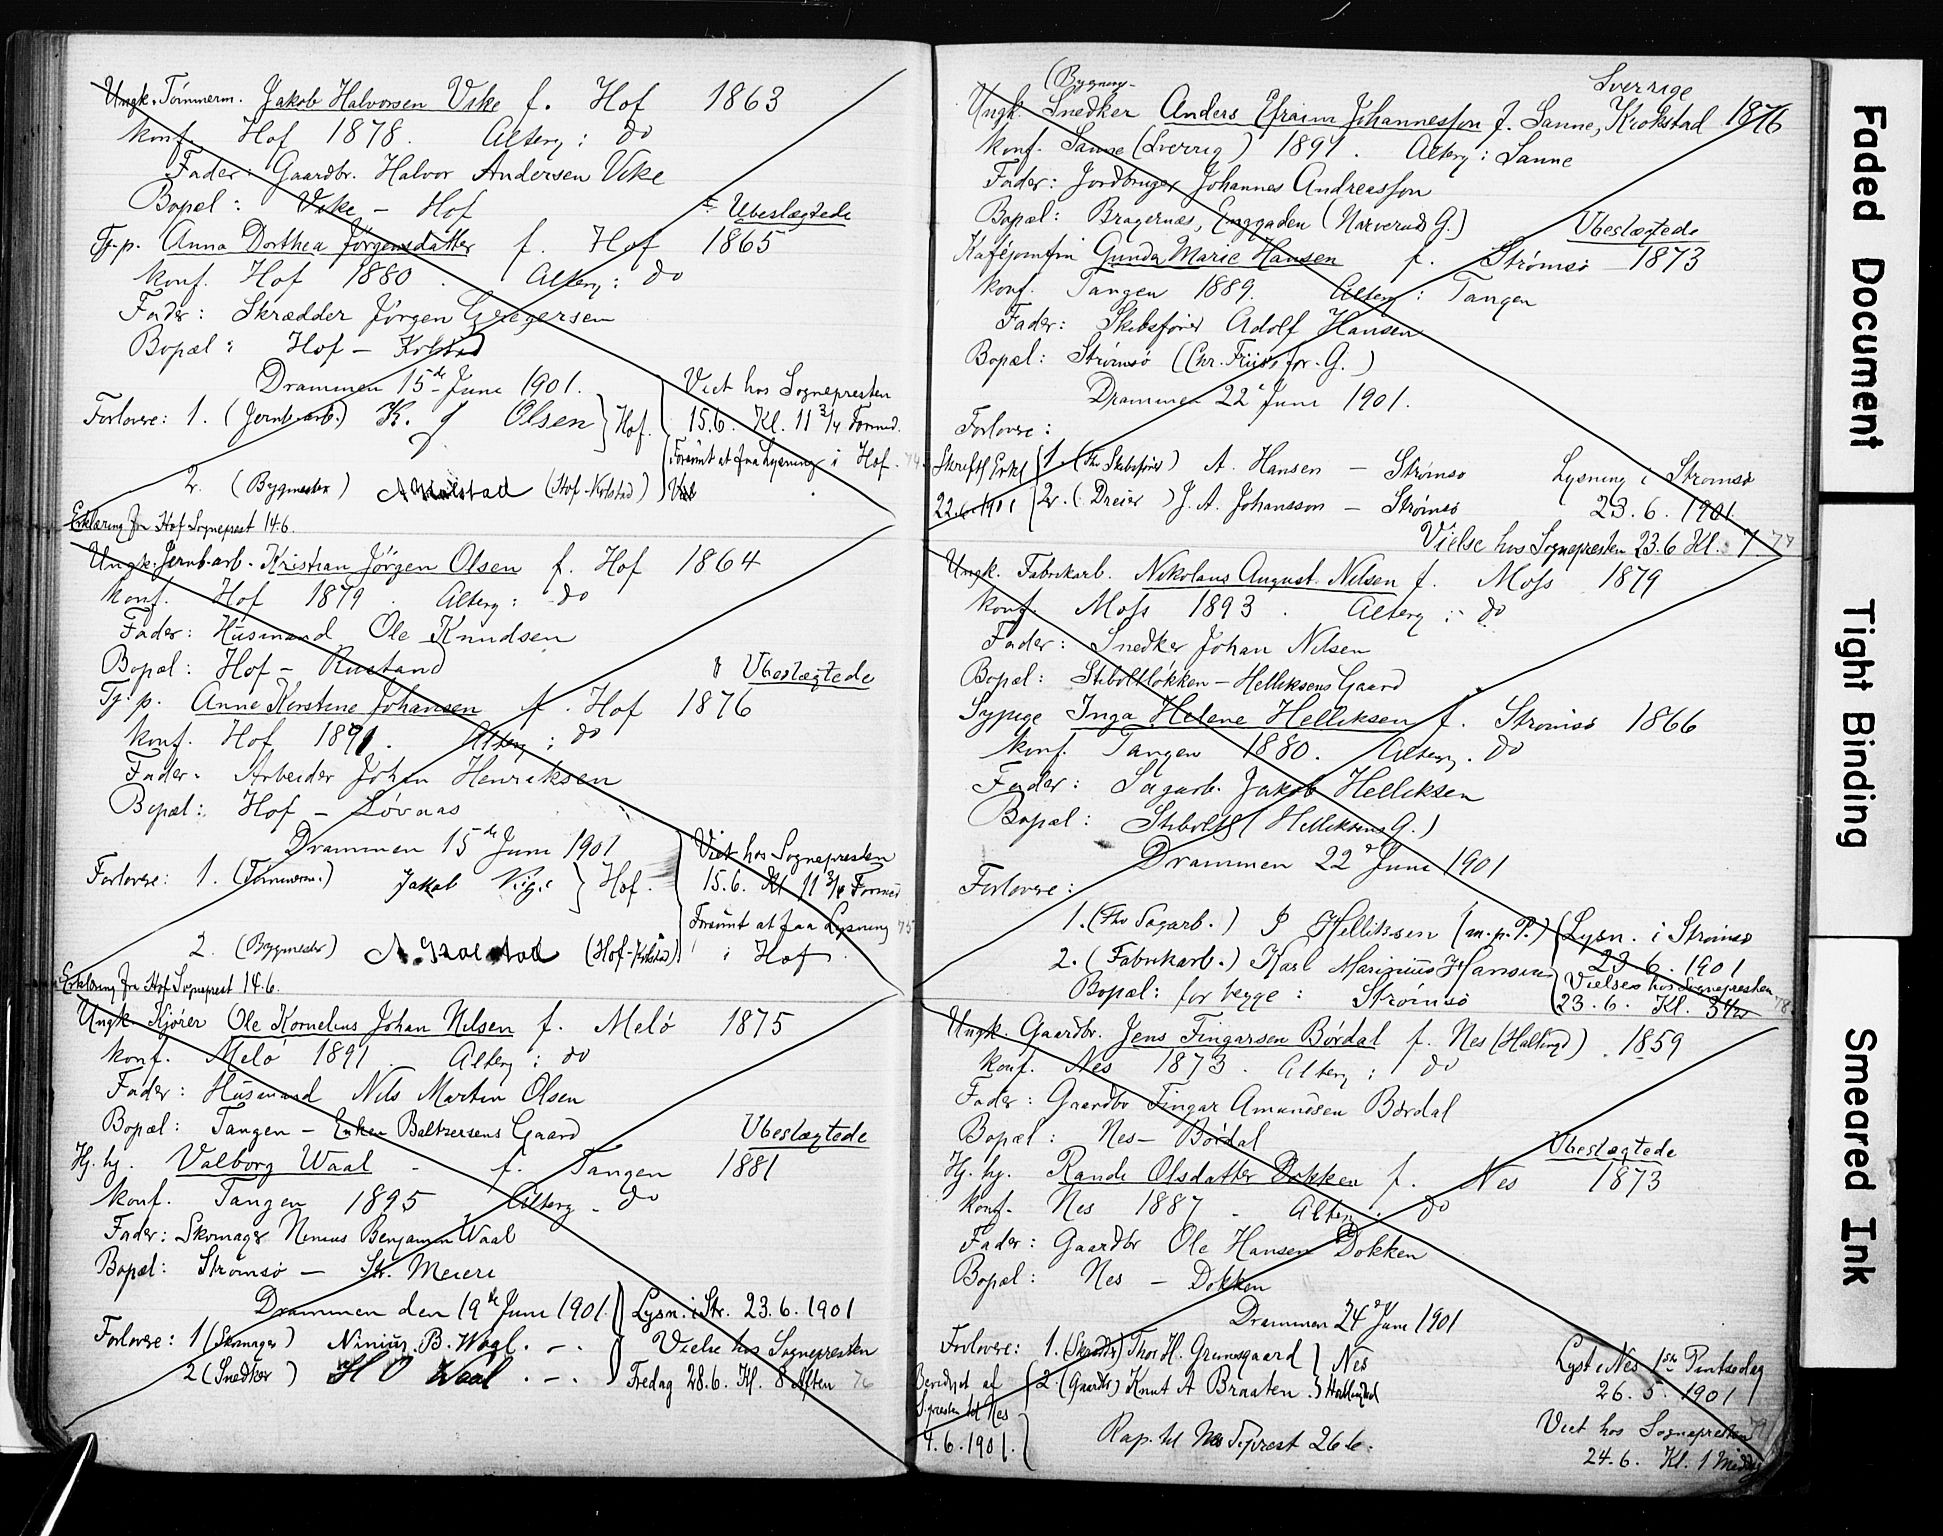 Ungk. Tømmerm. Jakob Halvorsen Vike f. Hof 1863
konf. Hof 1878. Alterg: do
Fader: Gaardbr. Halvor Andersen Vike
Bopæl: Vike – Hof
Ubeslægtede
Tj.p. Anna Dorthea Jørgensdatter f. Hof 1865
konf. Hof 1880. Alterg: do
Fader: Skrædder Jørgen Gregersen
Bopæl: Hof – Kolstad
Drammen 15de Juni 1901.
Viet hos Sognepresten
Forlovere: 1. (Jernb.arb.) K. J Olsen } Hof.
15.6. Kl. 11 3/4 Formd.
Forsømt at faa Lysning i Hof. 74
2. (Bygmester) A Kolstad (Hof-Kolstad)
Erklæring fra Hof Sogneprest 14.6.
Ungk. Jernb.arb. Kristian Jørgen Olsen f. Hof 1864
konf. Hof 1879. Alterg: do
Fader: Husmand Ole Knudsen
Bopæl: Hof – Rustand
Ubeslægtede
Tj.p. Anne Kirstine Johansen f. Hof 1876
konf. Hof 1891. Alterg: do
Fader. Arbeider Johan Henriksen
Bopæl: Hof – Løvaas
Drammen 15de Juni 1901
Viet hos Sognepresten
Forlovere: 1. (Tømmerm.) Jakob Vige } Hof.
15.6. Kl 11 3/4 Formd
Forsømt at faa Lysning 75
2. (Bygmester) A. Kolstad (Hof-Kolstad) i Hof.
Erklæring fra Hof Sogneprest 14.6.
Ungk. Kjører Ole Kornelius Johan Nilsen f. Melø 1875
konf. Melø 1891 Alterg: do
Fader: Husmand Nils Martin Olsen
Bopæl: Tangen – Enken Baltzersens Gaard
Ubeslægtede
Hj.hj. Valborg Waal - f. Tangen 1881
konf. Tangen 1895 Alterg. do
Fader: Skomager Ninius Benjamin Waal
Bopæl: Strømsø – Str. Meieri
Drammen den 19de Juni 1901.
Lysn. i Str. 23.6.1901
Forlovere: 1 (Skomager) Ninius. B. Waal. –.
Vielse hos Sognepresten
2 (Snedker) H O Waal. –.
Fredag 28.6. Kl. 8 Aften 76
(Bygning- Sverrige
Ungk. Snedker Anders Efraim Johannesson f. Sanne, Krokstad 1876
konf. Sanne (Sverrig) 1891. Alterg: Sanne
Fader: Jordbruger Johannes Andreasson
Bopæl: Bragernæs, Enggaden (Narverud G.)
Ubeslægtede
Kaféjomfru Gunda Marie Hansen f. Strømsø 1873
konf. Tangen 1889. Alterg: Tangen
Fader: Skibsfører Adolf Hansen
Bopæl: Strømsø (Chr. Friis for. G.)
Drammen 22de Juni 1901.
Forlovere:
Skriftl Erkl
1. (Fhv Skibsfører) A. Hansen – Strømsø
Lysning i Strømsø
22.6.1901
2. (Dreier) J. A. Johansson – Strømsø
23.6.1901.
Vielse hos Sognepresten 23.6 Kl. 7 77
Ungk. Fabrikarb. Nikolaus August Nilsen f. Moss 1879
konf. Moss 1893. Alterg: do
Fader: Snedker Johan Nilsen
Bopæl: Stiboltløkken – Helliksens Gaard
Sypige Inga Helene Helliksen f. Strømsø 1866
konf. Tangen 1880. Alterg. do
Fader: Sagarb. Jakob Helliksen
Bopæl: Stiboltl (Helliksens G.)
Drammen 22de Juni 1901
Forlovere:
1. (Fhv Sagarb.) J Helliksen (m.p.P.)
Lysn. i Strømsø
2. (Fabrikarb.) Karl Marinius Hansen
23.6.1901
Bopæl: for begge: Strømsø
Vielse hos Sognepresten
23.6. Kl. 3 1/2 78
Ungk. Gaardbr. Jens Fingarsen Børdal f. Nes (Hallingd) 1859
konf. Nes 1873. Alterg: do
Fader: Gaardbr Fingar Amundsen Børdal
Bopæl: Nes – Børdal
Ubeslægtede
Hj. hj. Randi Olsdatter Dokken f. Nes 1873
konf. Nes 1887. Alterg. do
Fader: Gaardbr Ole Hansen Dokken
Bopæl: Nes – Dokken
Drammen 24de Juni 1901
Forlovere: 1. (Skrædr) Thor H. Grimsgaard } Nes
Lyst i Nes 1ste Pintsedag
Bevidnet af
2 (Gaardbr) Knut A Braaten } Hallingdal
26.5.1901
S.presten til Nes
4.6.1901.
Rap. til Nes Sgprest 26 6.
Viet hos Sognepresten 79
24.6. Kl. 1 Middag
Faded Document
Tight Binding
Smeared Ink